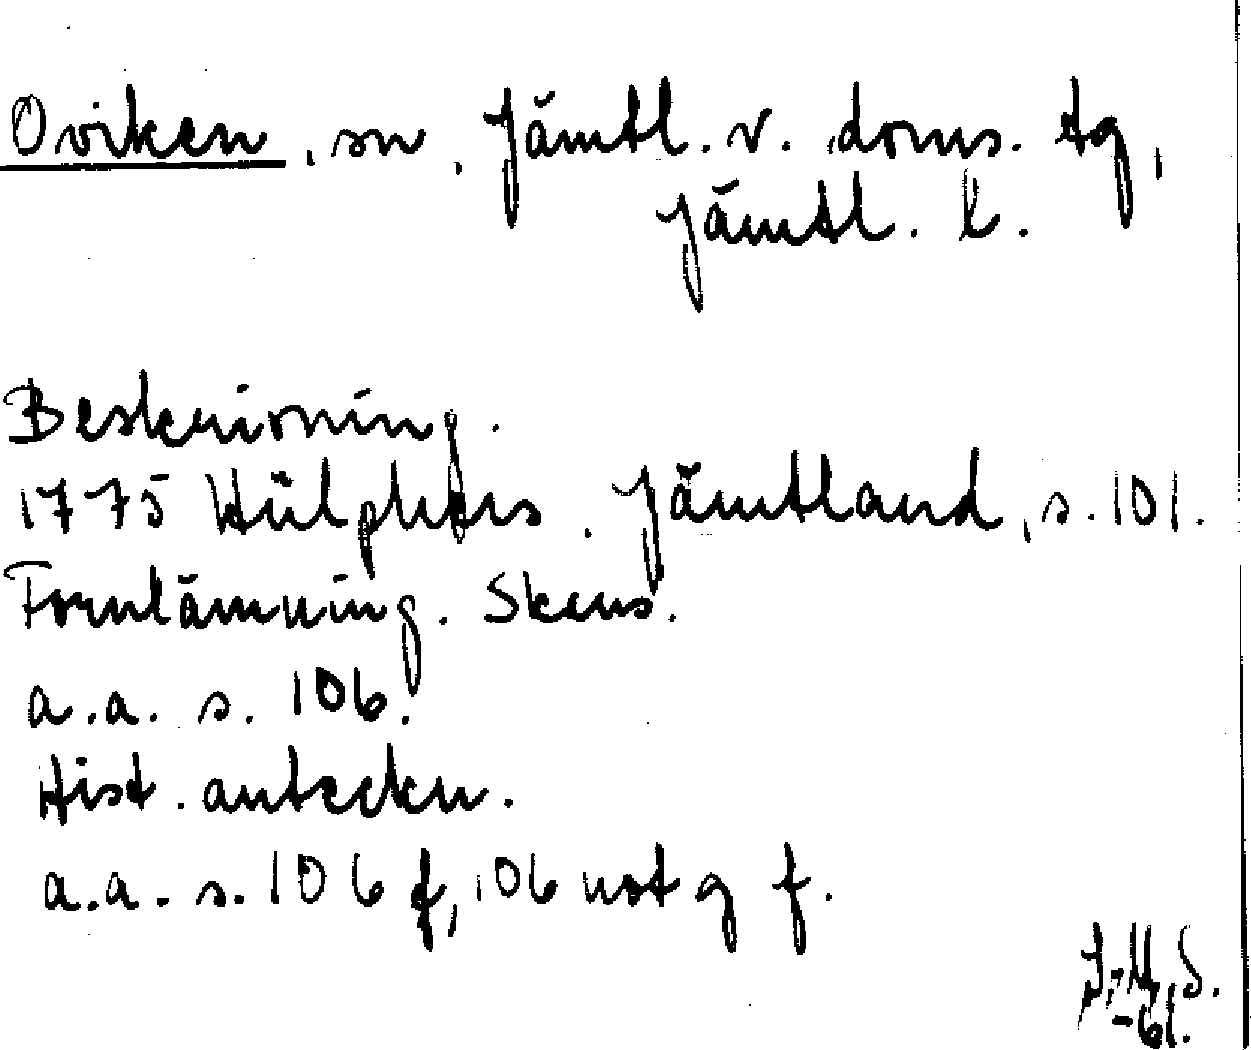 Oviken, sn, Jämtl. v. doms. tg,
Jämtl. l.
Beskrivning.
1775 Hülphers. Jämtland, s. 101.
Fornlämning. Skans.
a.a. s. 106.
Hist. anteckn.
a.a. s. 106 f, 106 not g f.
I.-M. S.
-61.